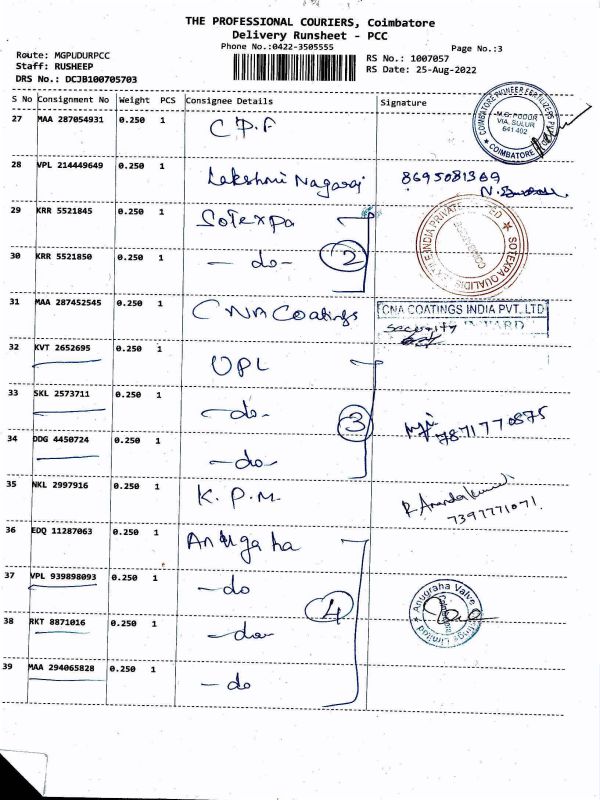 THE PROFESSIONAL COURIERS, Coimbatore
Delivery Runsheet - PCC
Phone No.:0422-3505555
Page No.:3
Route: MGPUDURPCC
Staff: RUSHEEP
DRS No.: DCJB100705703
RS No.: 1007057
RS Date: 25-Aug-2022
S No Consignment No Weight PCS Consignee Details Signature
27 MAA 287054931 0.250 1 C.P.F
COIMBATORE PIONEER FERTILIZERS
M.G. PUDUR
VIA. SULUR
641 402
COIMBATORE
28 VPL 214449649 0.250 1 Lakshmi Nagaraj 8695081369
29 KRR 5521845 0.250 1 Sotexpa
30 KRR 5521850 0.250 1 - do - 2
SOTEXPA QUALIDIS TEXTILE INDIA PRIVATE LIMITED
COIMBATORE
31 MAA 287452545 0.250 1 CNA Coatings
CNA COATINGS INDIA PVT. LTD
security INWARD
32 KVT 2652695 0.250 1 UPL
33 SKL 2573711 0.250 1 - do - 3
7871770875
34 DDG 4450724 0.250 1 - do -
35 NKL 2997916 0.250 1 K.P.M.
7397771071
36 EDQ 11287063 0.250 1 Anugaha
37 VPL 939898093 0.250 1 - do 4
Anugraha Valve Castings Limited
38 RKT 8871016 0.250 1 - do -
39 MAA 294065828 0.250 1 - do